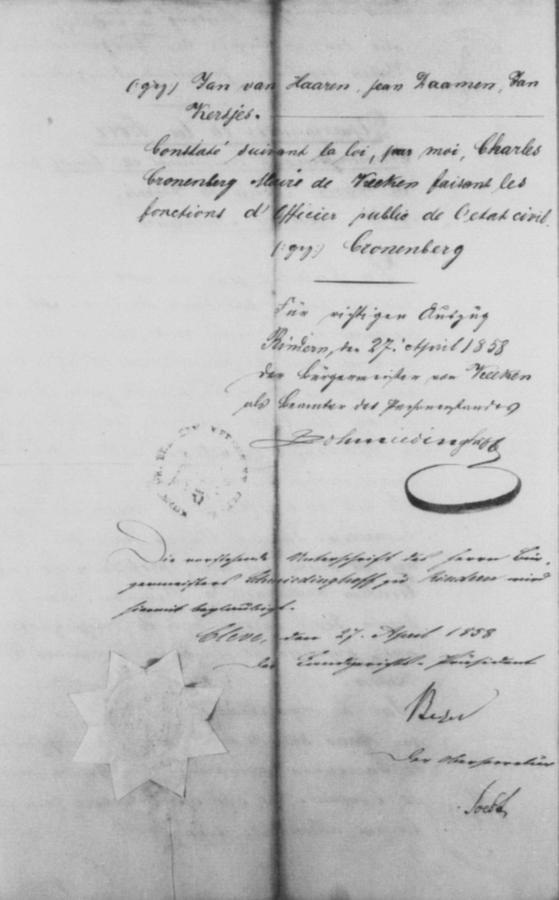 (:gez:) Jan van Haaren, jean Daamen, Jan
Kersjes.
Constaté suivant la loi, par moi, Charles
Cronenberg Maire de Keeken faisant les
fonctions d'Officier public de l'etat civil.
(:gez:) Cronenberg
Für richtigen Auszug
Rindern, den 27. April 1858
Der Bürgermeister von Keeken
als Beamter des Personenstandes
Schmiedinghoff
Die vorstehende Unterschrift des Herrn Bür-
germeisters Schmiedinghoff zu Rindern wird
hiermit beglaubigt.
Cleve, den 27. April 1858
Der Landgerichts-Präsident
Der Obersecretär